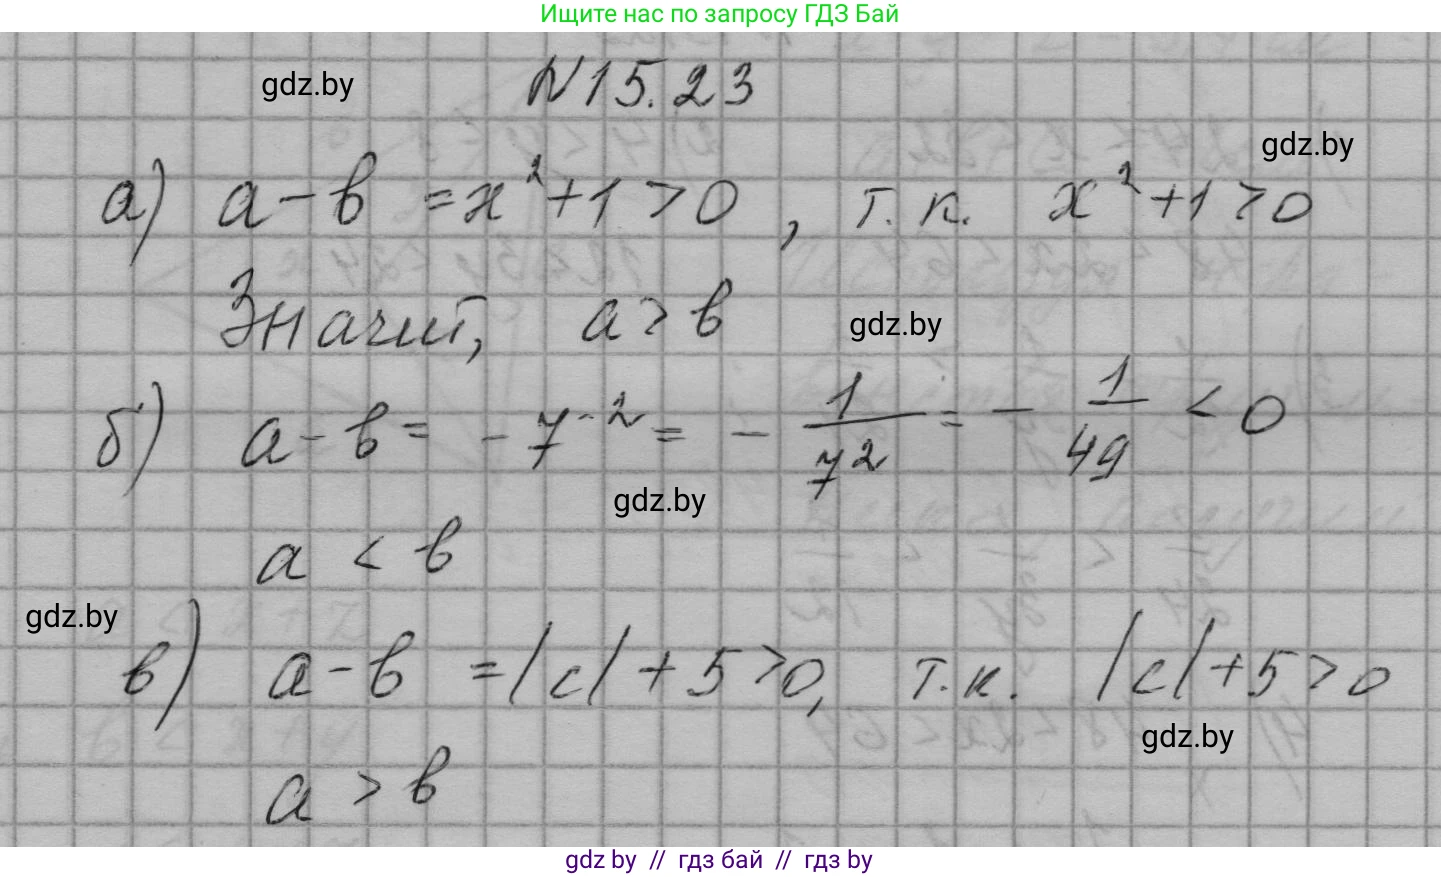 Ищите нас по запросу ГДЗ Бай
gdz.by
N15.23
gdz.by
а) a-b = x²+1>0, т.к. x²+1>0
Значит, a>b
gdz.by
б) a-b = -7⁻² = - 1/7² = - 1/49 < 0
gdz.by
a < b
gdz.by
в) a-b = |c|+5>0, т.к. |c|+5>0
gdz.by
a > b
gdz by // гдз бай // гдз by